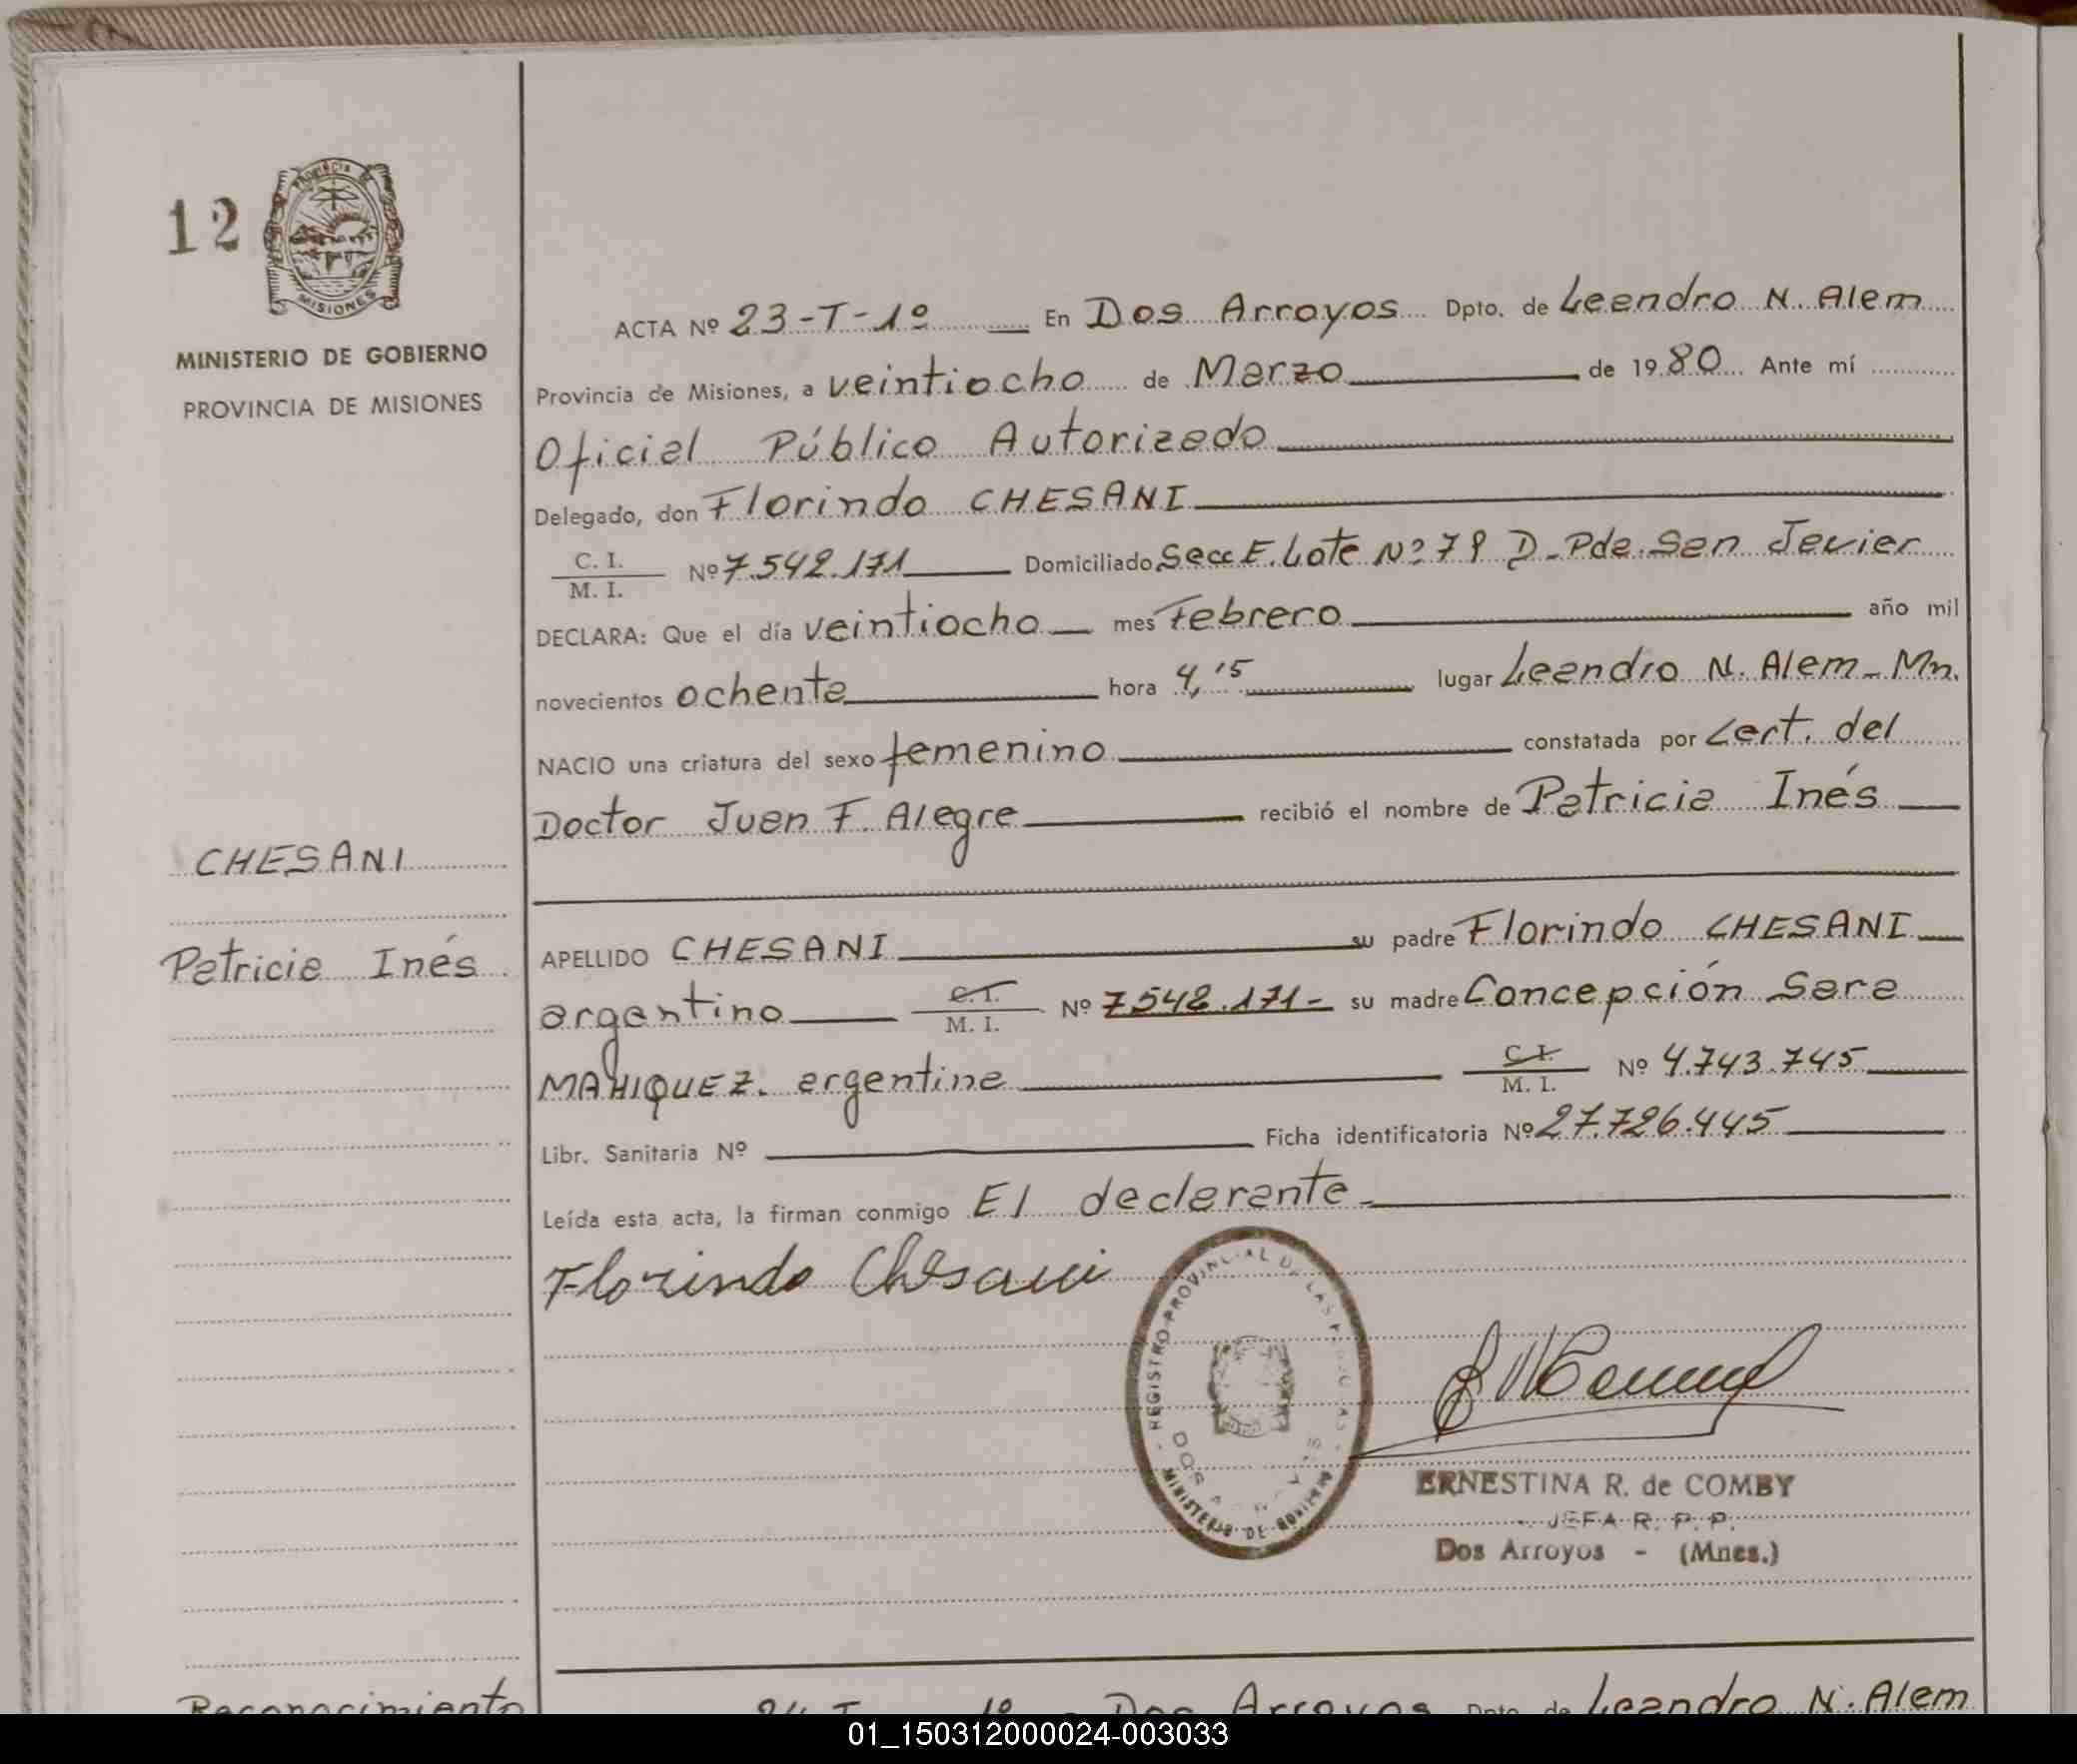 12
PROVINCIA DE
MISIONES
MINISTERIO DE GOBIERNO
PROVINCIA DE MISIONES
CHESANI
Patricia Inés
ACTA Nº 23-T-1º En Dos Arroyos Dpto. de Leandro N. Alem
Provincia de Misiones, a veintiocho de Marzo de 1980 Ante mí
Oficial Público Autorizado
Delegado, don Florindo CHESANI
C. I.
M. I. Nº 7.542.171 Domiciliado Secc E. Lote Nº 79 D- Pda. San Javier
DECLARA: Que el día veintiocho mes Febrero año mil
novecientos ochenta hora 4,15 lugar Leandro N. Alem - Mn.
NACIO una criatura del sexo femenino constatada por Cert. del
Doctor Juan F. Alegre recibió el nombre de Patricia Inés
APELLIDO CHESANI su padre Florindo CHESANI
argentino C. I. M. I. Nº 7.542.171- su madre Concepción Sara
MAHIQUEZ. argentina C. I. M. I. Nº 4.743.745
Libr. Sanitaria Nº Ficha identificatoria Nº 27.726.445
Leída esta acta, la firman conmigo El declarante.
Florindo Chesani
REGISTRO PROVINCIAL DE LAS PERSONAS
DOS ARROYOS
MINISTERIO DE GOBIERNO
ERNESTINA R. de COMBY
JEFA R. P. P.
Dos Arroyos - (Mnes.)
Reconocimiento
24-T 1º Dos Arroyos Dpto. de Leandro N. Alem
01_150312000024-003033